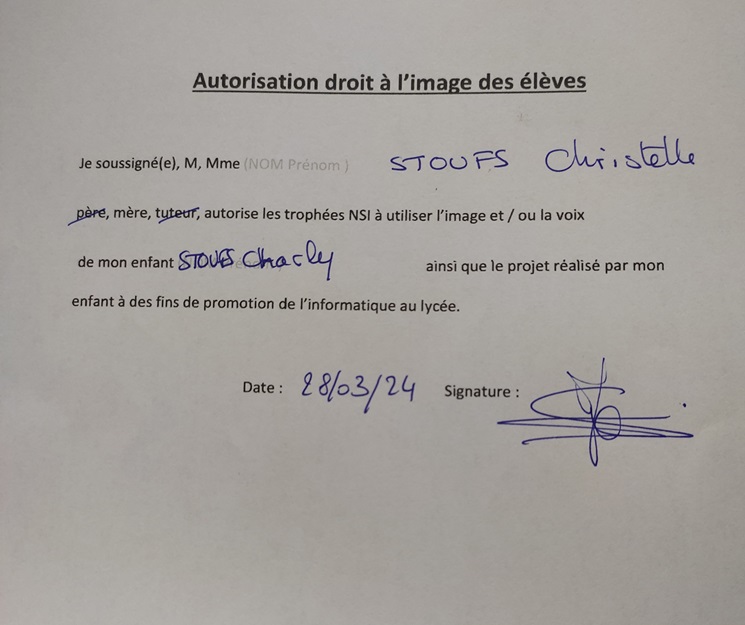 Autorisation droit à l'image des élèves
Je soussigné(e), M, Mme (NOM Prénom ) STOUFS Christelle
père, mère, tuteur, autorise les trophées NSI à utiliser l'image et / ou la voix
de mon enfant STOUFS Charly ainsi que le projet réalisé par mon
enfant à des fins de promotion de l'informatique au lycée.
Date : 28/03/24 Signature :